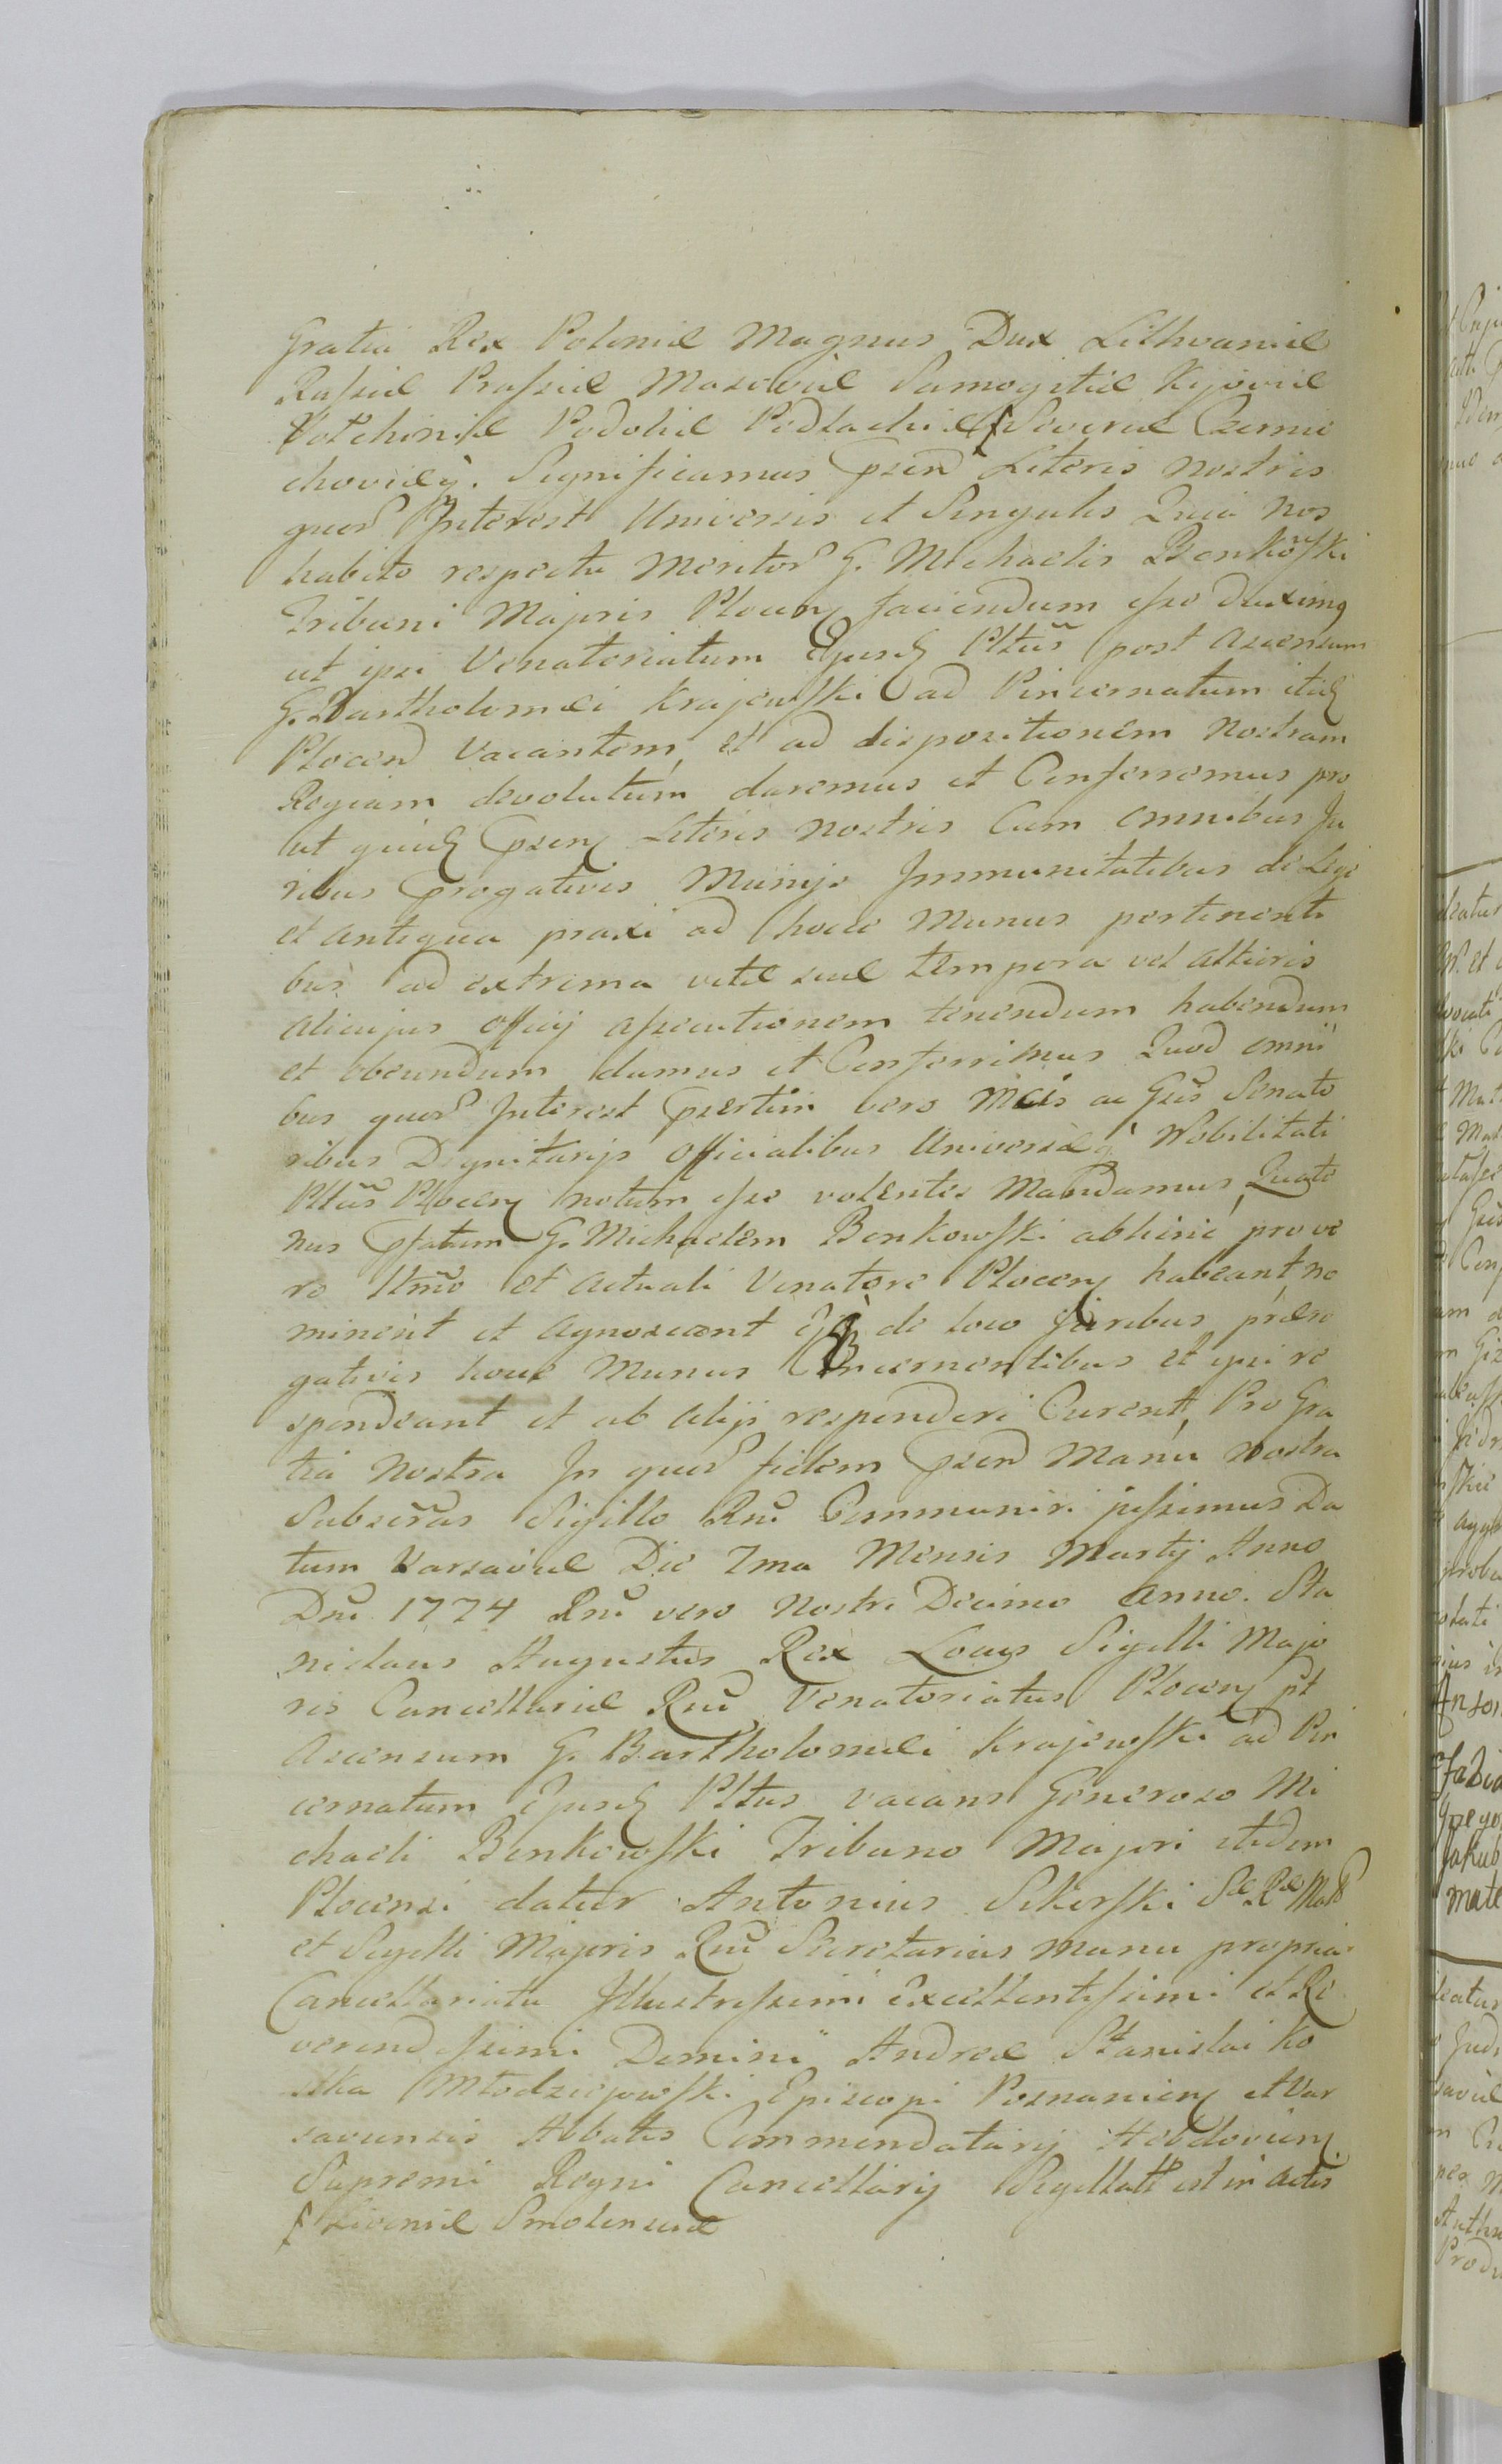 Gratia Rex Poloniæ Magnus Dux Lithvaniæ
Russiæ Prussiæ Masoviæ Samogitiæ Kijoviæ
Volhiniæ Podoliæ Podlachiæ ƒ Severiæ Czernie
choviæq̀. Significamus Psen Literis nostris
quor Interest Universis et Singulis Quia nos
habito respectu Meritor G. Michaelis Benkowski
Tribuni Majoris Plocen faciendum esse duximg
ut ipsi Venatoriatum Ejusd Pltũs post ascensum
G. Bartholomæi Krajewski ad Pincernatum itid
Plocen vacantem, et ad dispositionem Nostram
Regiam devolutum daremus et Conferremus pro
ut quid Psen Literis nostris Cum omnibus Ju
ribus Progativis Munijs Immunitatibus de Lege
et antiqua praxi ad hocce Munus pertinenti
bus ad extrema vitæ suæ tempora vel altioris
alicujus officij assecutionem tenendum habendum
et obeundum damus et Conferrimus Quod omni
bus quor Interest Psertim vero Mcis ac Gsis Senato
ribus Dignitarijs Officialibus Universæq̀ Nobilitati
Pltũs Plocen notum esse volentes Mandamus Quate
nus Pfatum G. Michaelem Benkowski abhinc pro ve
ro ltmo et actuali Venatore Plocen habeant no
minent et agnoscant de loco Juribus præro
gativis hocce Munus Concernentibus et ipsi re
spondeant et ab alijs responderi Curent, Pro Gra
tia Nostra In quor fidem Psen Manu nostra
Subscr̃as Sigillo Rnĩ Communiri jussimus Da
tum Varsaviæ Die Ima Mensis Martij Anno
Dnĩ 1774 Rnĩ vero Nostri Decimo anno. Sta
nislaus Augustus Rex Locus Sigilli Majo
ris Cancellariæ Rnĩ Venatoriatus Plocen pt
Ascensum G. Bartholomæi Krajewski ad Pin
cernatum Ejusd Pltus vacans Generoso Mi
chaeli Benkowski Tribuno Majori itidem
Plocensi datur Antonius Sikorski Sæ Ræ Matt
et Sigilli Majoris Rnĩ Secretarius manu propria
Cancellariatu Illustrissimi Excellentissimi et Re
verendissimi Domini Andreæ Stanislai Ko
stka Młodziejowski Episcopi Posnanien et Var
saviensis Abbatis Commendatarij Hebdovien
Supremi Regni Cancellarij Sigillatt est in actis
ƒ Livoniæ Smolensiæ